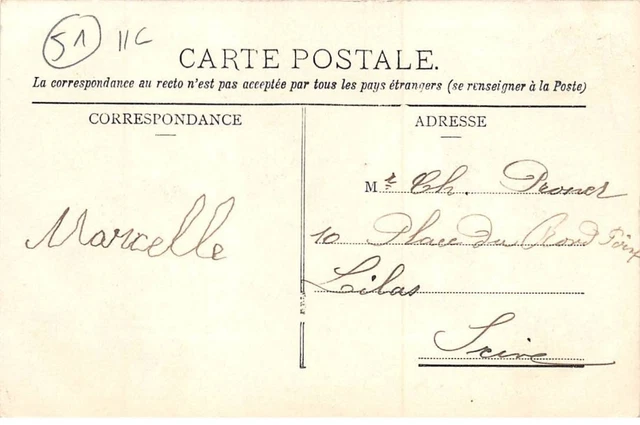 51 11C
CARTE POSTALE.
La correspondance au recto n'est pas acceptée par tous les pays étrangers (se renseigner à la Poste)
CORRESPONDANCE
ADRESSE
Mr Ch.
10 Place du Rond Point
Marcelle
Lilas
Seine